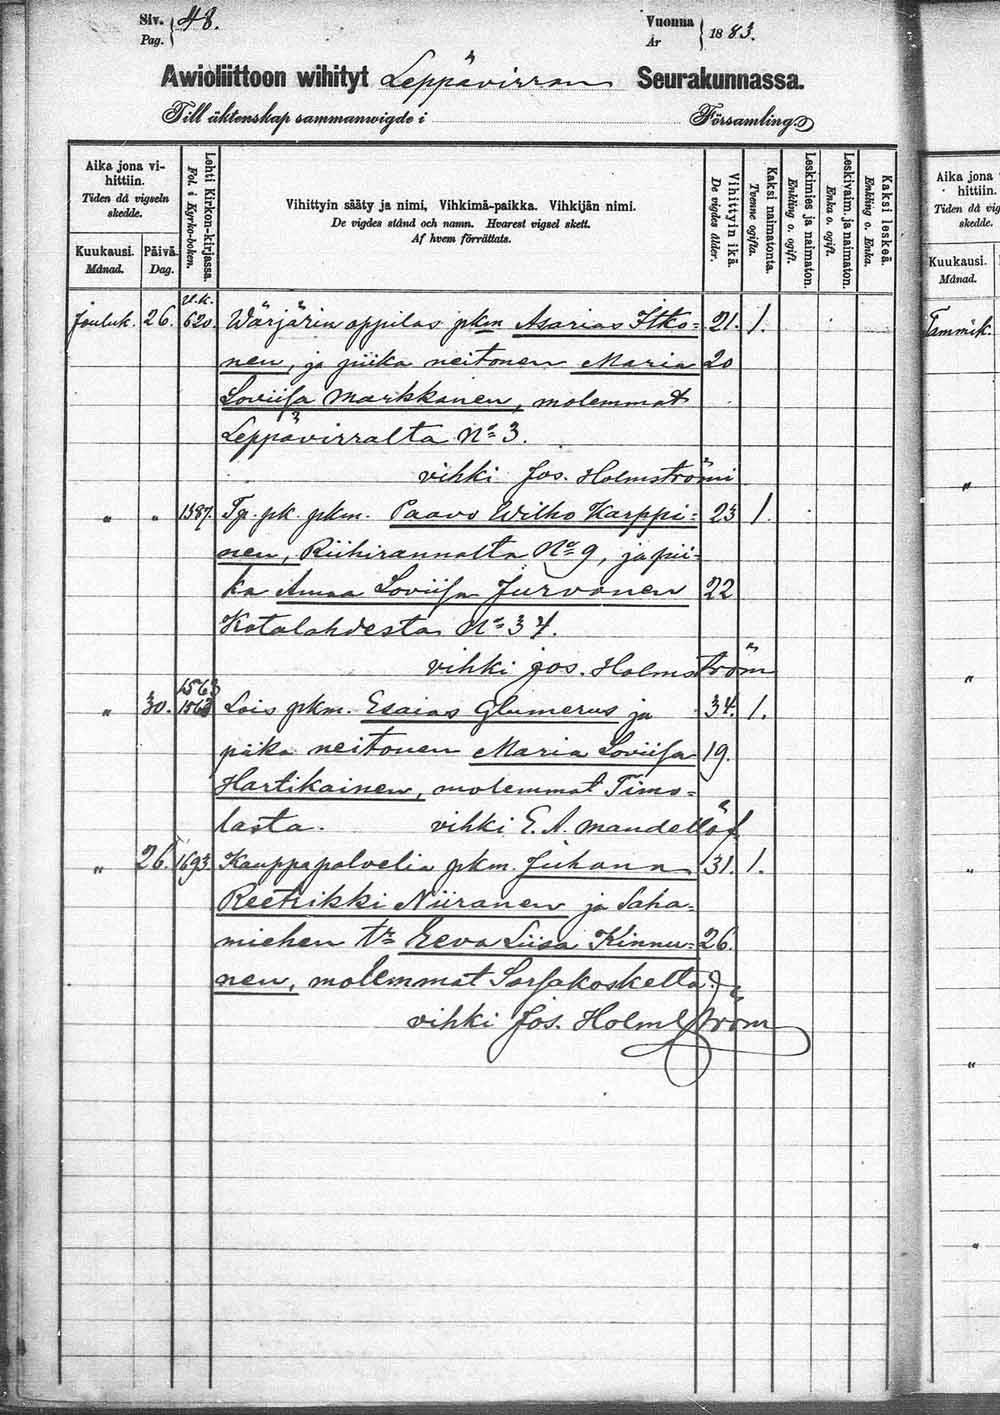 Siv. 48.
Pag.
Vuonna 1883.
År
Awioliittoon wihityt Leppävirran Seurakunnassa.
Till äktenskap sammanwigde i Församling.
Aika jona vihittiin.
Tiden då vigseln skedde.
Kuukausi.
Månad.
Päivä.
Dag.
Lehti Kirkon-kirjassa.
Fol. i Kyrko-boken.
Vihittyin sääty ja nimi, Vihkimä-paikka. Vihkijän nimi.
De vigdes stånd och namn. Hvarest vigsel skett.
Af hvem förrättats.
Vihittyin ikä.
De vigdes ålder.
Kaksi naimatonta.
Tvenne ogifta.
Leskimies ja naimaton.
Enkling o. ogift.
Leskivaim. ja naimaton.
Enka o. ogift.
Kaksi leskeä.
Enkling o. Enka.
Jouluk. 26. 620. Wärjärin oppilas pkm Asarias Itko= 21. 1.
nen, ja piika neitonen Maria 20
Loviisa Markkanen, molemmat
Leppävirralta No 3.
vihki Jos. Holmströmi
" " 1387. Tp. pk. pkm. Paavo Wilho Karppi= 23 1.
nen, Riihirannalta No 9, ja pii=
ka Anna Loviisa Jurvanen 22
Kotalahdesta No 34.
vihki Jos. Holmström
1563
" 30. Lois pkm. Esaias Glumerus ja 34. 1.
piika neitonen Maria Loviisa 19.
Hartikainen, molemmat Timo=
lasta. vihki E. A. Mandellöf
" 26. 1693. Kauppapalvelia pkm. Juhana 31. 1.
Reetrikki Niiranen ja Saha=
miehen tr Eeva Liisa Kinnu= 26.
nen, molemmat Sorsakoskelta
vihki Jos. Holmström
Aika jona
hittiin.
Tiden då vig
skedde.
Kuukausi.
Månad.
Tammik.
"
"
"
"
"